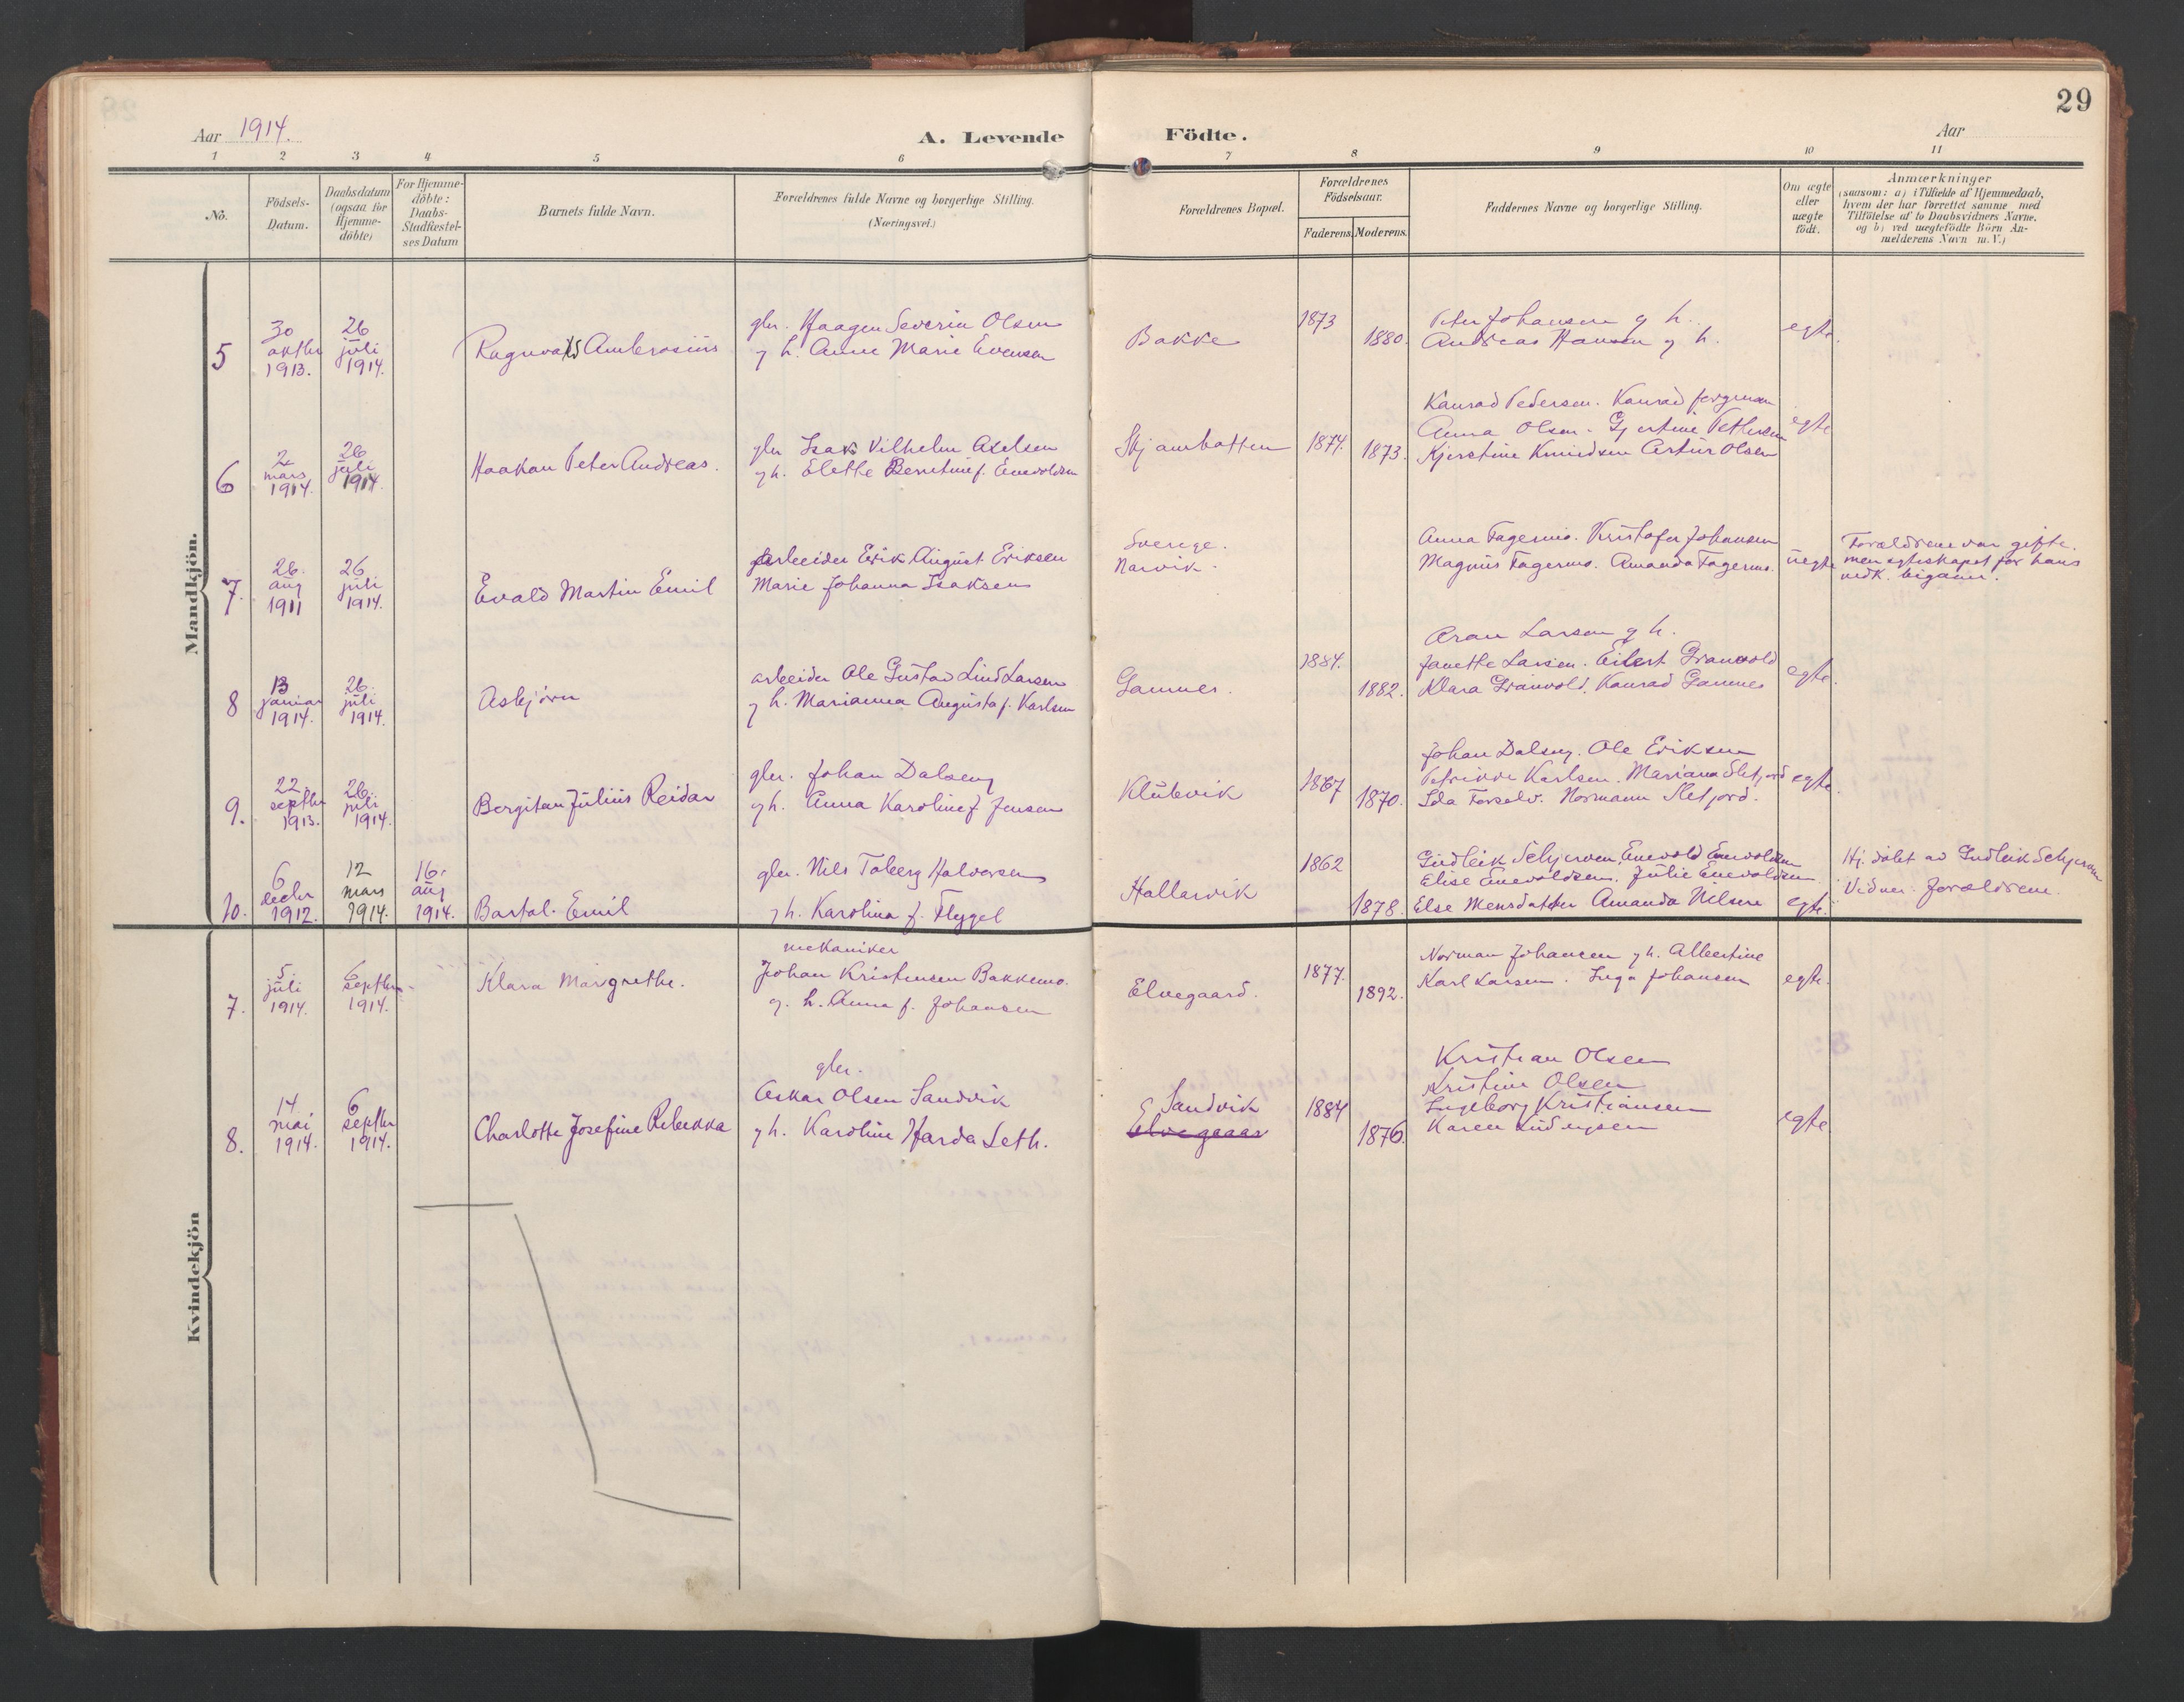 29
Aar 1914.
A. Levende Födte.
Aar
1 2 3 4 5 6 7 8 9 10 11
No.
Födsels-
Datum.
Daabsdatum
(ogsaa for
Hjemme-
döbte)
For Hjemme-
döbte:
Daabs-
Stadfæstel-
ses Datum
Barnets fulde Navn.
Forældrenes fulde Navne og borgerlige Stilling.
(Næringsvei.)
Forældrenes Bopæl.
Forældrenes
Födselsaar.
Faderens. Moderens.
Faddernes Navne og borgerlige Stilling.
Om ægte
eller
uægte
födt.
Anmærkninger
(saasom: a) i Tilfælde af Hjemmedaab,
hvem der har forrettet samme med
Tilföielse af to Daabsvidners Navne,
og b) ved uægtefödte Börn An-
melderens Navn m. V.)
Mandkjön.
5
30
oktbr
1913.
26
juli
1914.
Ragnvald Ambrosius
gbr. Haagen Severin Olsen
g h. Anne Marie Evensen
Bakke
1873
1880.
Peter Johansen g h.
Andreas Hansen g h.
egte.
6
2
mars
1914.
26
juli
1914.
Haakon Peter Andreas.
gbr Isak Vilhelm Axelsen
g h. Elette Berntine f. Enevoldsen
Skjambatten
1874.
1873.
Konrad Pedersen. Konrad
Anna Olsen. Gjertine Pettersen
Kjerstine Knudsen Artur Olsen
egte
7.
26.
aug
1911
26
juli
1914.
Evald Martin Emil
arbeider Erik August Eriksen
Marie Johanna Isaksen
Sverige.
Narvik.
Anna Fagermo. Kristofer Johansen
Magnus Fagermo. Amanda Fagermo.
uegte
Forældrene var gifte.
men egteskapet for hans
vedk. bigami.
8
13
januar
1914.
26.
juli
1914.
Asbjørn
arbeider Ole Gustav Lind Larsen
g h. Marianna Augusta f. Karlsen
Gammes.
1884.
1882.
Aron Larsen g h.
Janette Larsen. Eilert Granvold
Klara Granvold. Konrad Gammes
egte.
9.
22.
septbr
1913.
26.
juli
1914.
Bergitan Julius Reidar
gbr. Johan Dalseng
g h. Anna Karoline f Jensen
Klubvik
1867
1870.
Johan Dalseng. Ole Eriksen
Petrikke Karlsen. Mariana Slefjord
Ida Forselv. Normann Slefjord.
egte.
10.
6
decbr
1912.
12
mars
1914.
16.
aug
1914.
Bartol. Emil
gbr. Nils Toberg Halvorsen
g h. Karolina f. Flygel
Hallarvik
1862
1878.
Gudleik Schjerven. Enevold Enevoldsen
Elise Enevoldsen. Julie Enevoldsen
Else Mensdatter Amanda Nilsen
egte.
Hj. døbt av Gudleik Schjerven
Vidner: forældrene.
Kvindekjön
7.
5
juli
1914.
6
septbr.
1914.
Klara Margrethe.
mekaniker
Johan Kristensen Bakkemo.
g. h. Anna f. Johansen
Elvegaard.
1877.
1892.
Norman Johansen g h. Albertine
Karl Larsen. Inga Johansen
egte.
8.
14
mai
1914.
6
septbr
1914.
Charlotte Josefine Rebekka
gbr.
Oskar Olsen Sandvik
g h. Karoline Harda Seth.
Sandvik
Elvegaar
1884
1876.
Kristian Olsen
Kristine Olsen
Ingeborg Kristiansen
Karen Ludvigsen
egte